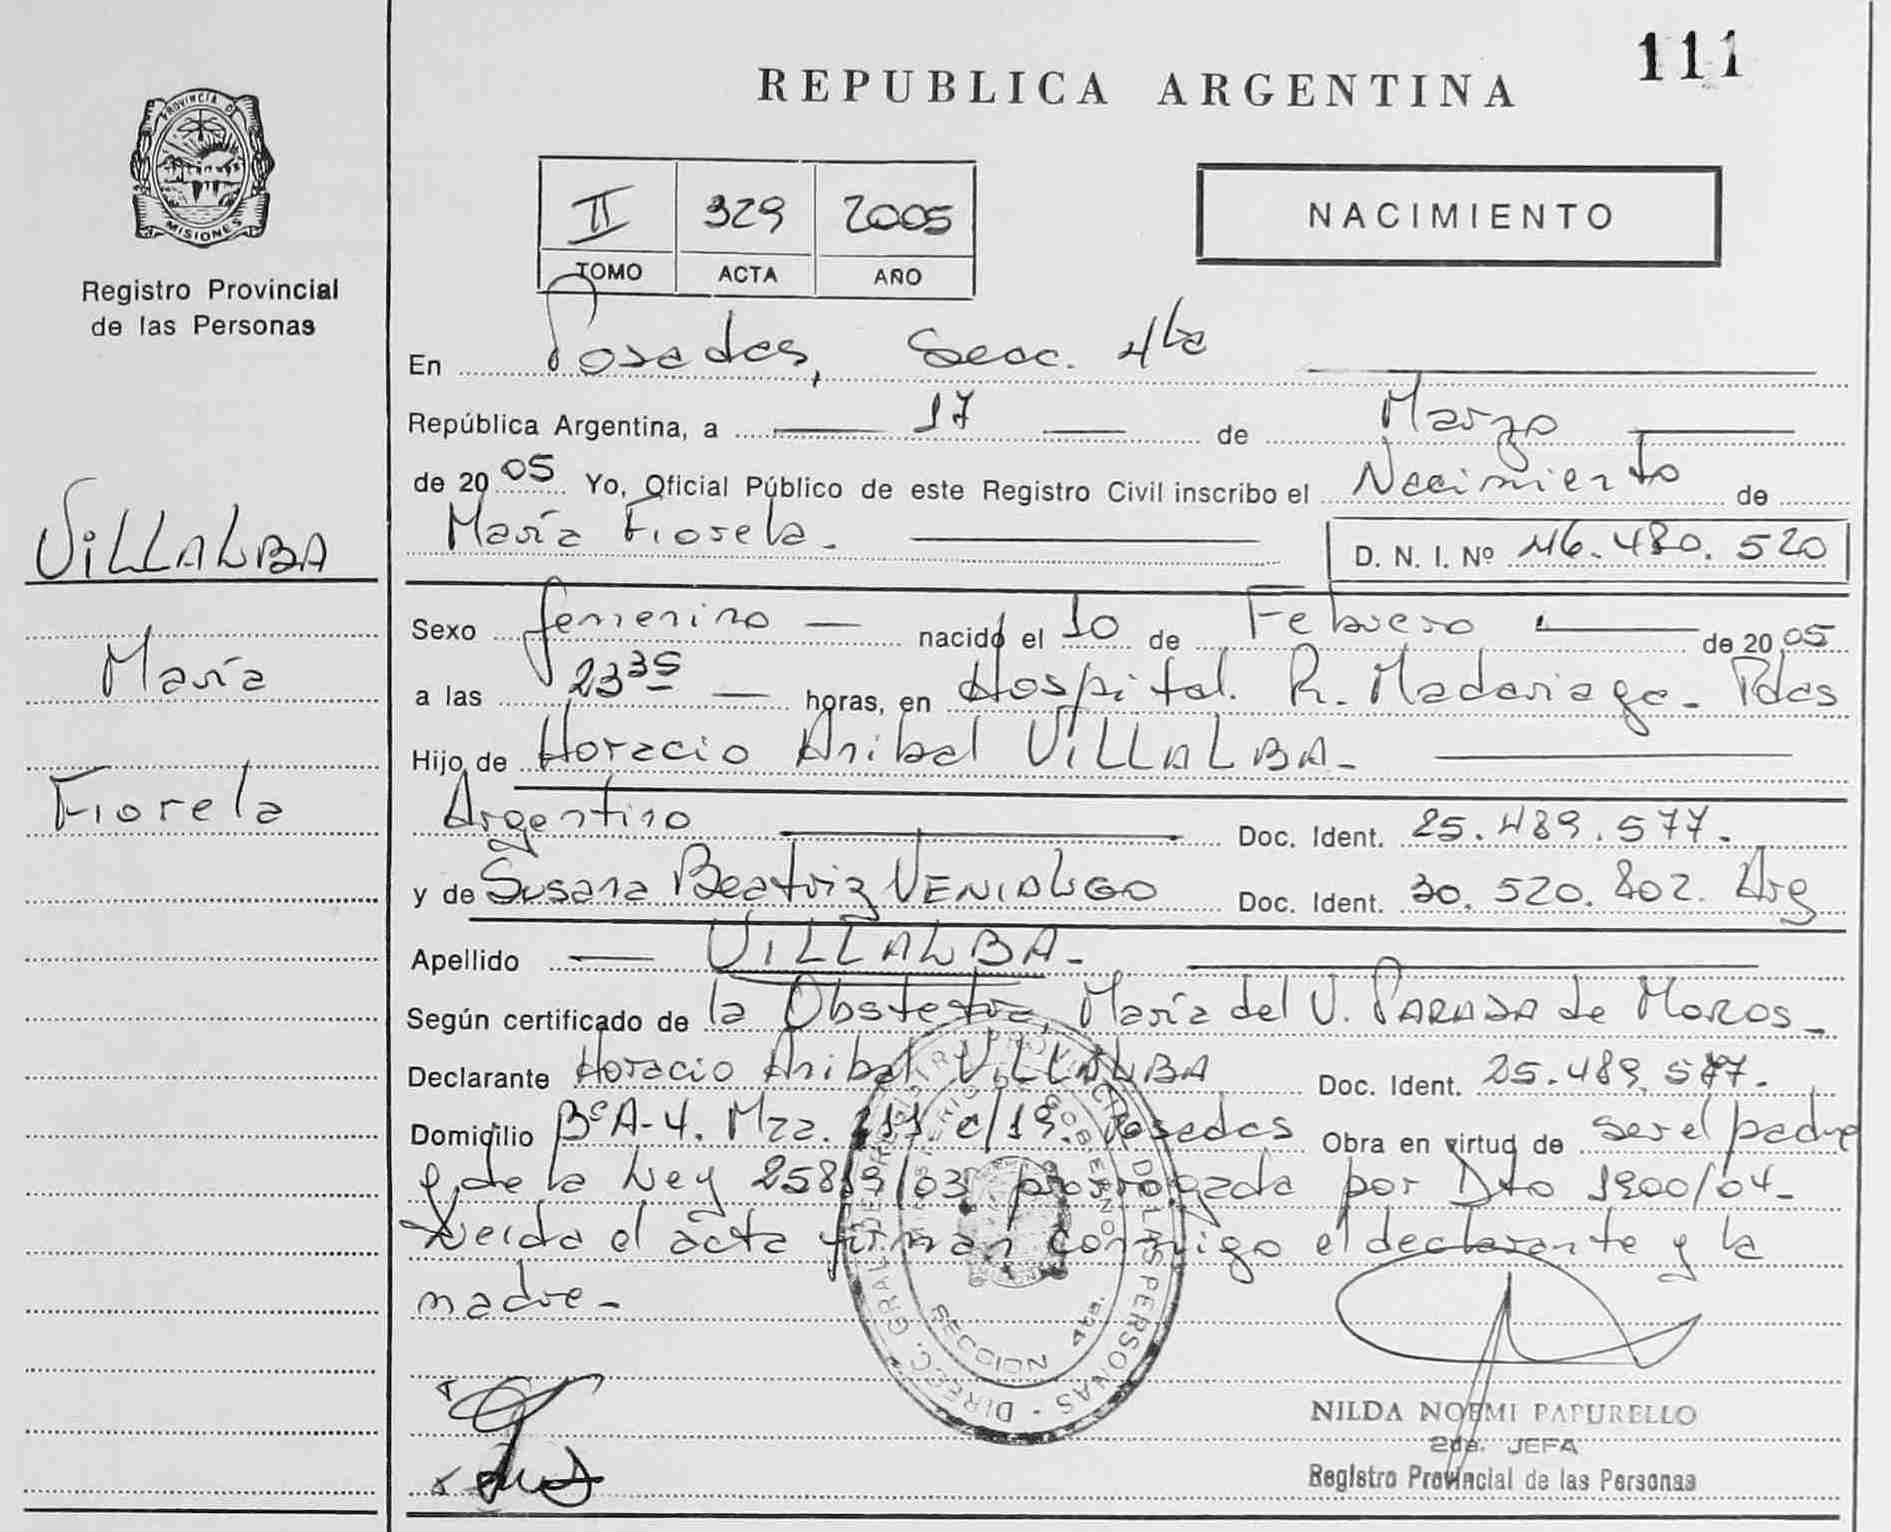 111
REPUBLICA ARGENTINA
PROVINCIA DE
MISIONES
Registro Provincial
de las Personas
II 329 2005
TOMO ACTA AÑO
NACIMIENTO
VILLALBA
María
Fiorela
En Posadas, Secc. 4ta
República Argentina, a 17 de Marzo
de 2005 Yo, Oficial Público de este Registro Civil inscribo el Nacimiento de
María Fiorela. D. N. I. Nº 46.480.520
Sexo femenino nacido el 10 de Febrero de 2005
a las 23 35 horas, en Hospital. R. Madariaga. Pdas
Hijo de Horacio Anibal VILLALBA.
Argentino Doc. Ident. 25.489.577.
y de Susana Beatriz VENIALGO Doc. Ident. 30.520.802. Arg
Apellido VILLALBA.
Según certificado de la Obstetra, María del V. PARADA de MOROS
Declarante Horacio Anibal VILLALBA Doc. Ident. 25.489.577.
Domicilio BºA-4. Mza. 111 c/19. Posadas Obra en virtud de ser el padre
y de la Ley 25819/03 prorrogada por Dto 1900/04-
Leida el acta firman conmigo el declarante y la
madre-
DIRECC. GRAL. DE REGISTRO PROVINCIAL DE LAS PERSONAS
GOBIERNO
SECCION 4ta.
NILDA NOEMI PAPURELLO
2da. JEFA
Registro Provincial de las Personas